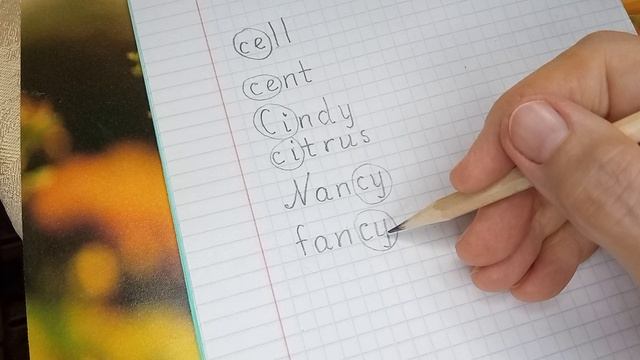 cell
cent
Cindy
citrus
Nancy
fancy